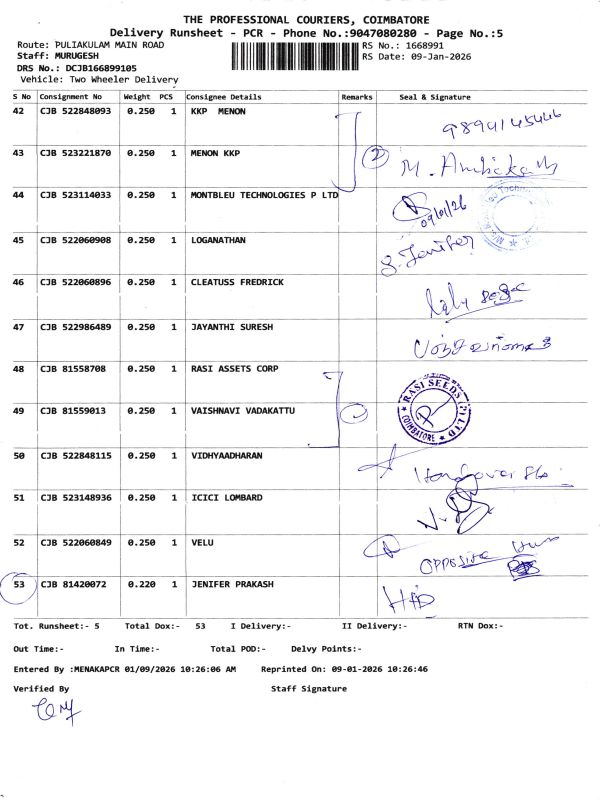 THE PROFESSIONAL COURIERS, COIMBATORE
Delivery Runsheet - PCR - Phone No.:9047080280 - Page No.:5
Route: PULIAKULAM MAIN ROAD RS No.: 1668991
Staff: MURUGESH RS Date: 09-Jan-2026
DRS No.: DCJB166899105
Vehicle: Two Wheeler Delivery
S No Consignment No Weight PCS Consignee Details Remarks Seal & Signature
42 CJB 522848093 0.250 1 KKP MENON
43 CJB 523221870 0.250 1 MENON KKP 2
44 CJB 523114033 0.250 1 MONTBLEU TECHNOLOGIES P LTD 09/01/26
45 CJB 522060908 0.250 1 LOGANATHAN
46 CJB 522060896 0.250 1 CLEATUSS FREDRICK
47 CJB 522986489 0.250 1 JAYANTHI SURESH
48 CJB 81558708 0.250 1 RASI ASSETS CORP
RASI SEEDS (P) LTD COIMBATORE
49 CJB 81559013 0.250 1 VAISHNAVI VADAKATTU
50 CJB 522848115 0.250 1 VIDHYAADHARAN
51 CJB 523148936 0.250 1 ICICI LOMBARD
52 CJB 522060849 0.250 1 VELU OPPOSite
53 CJB 81420072 0.220 1 JENIFER PRAKASH
Tot. Runsheet:- 5 Total Dox:- 53 I Delivery:- II Delivery:- RTN Dox:-
Out Time:- In Time:- Total POD:- Delvy Points:-
Entered By :MENAKAPCR 01/09/2026 10:26:06 AM Reprinted On: 09-01-2026 10:26:46
Verified By Staff Signature